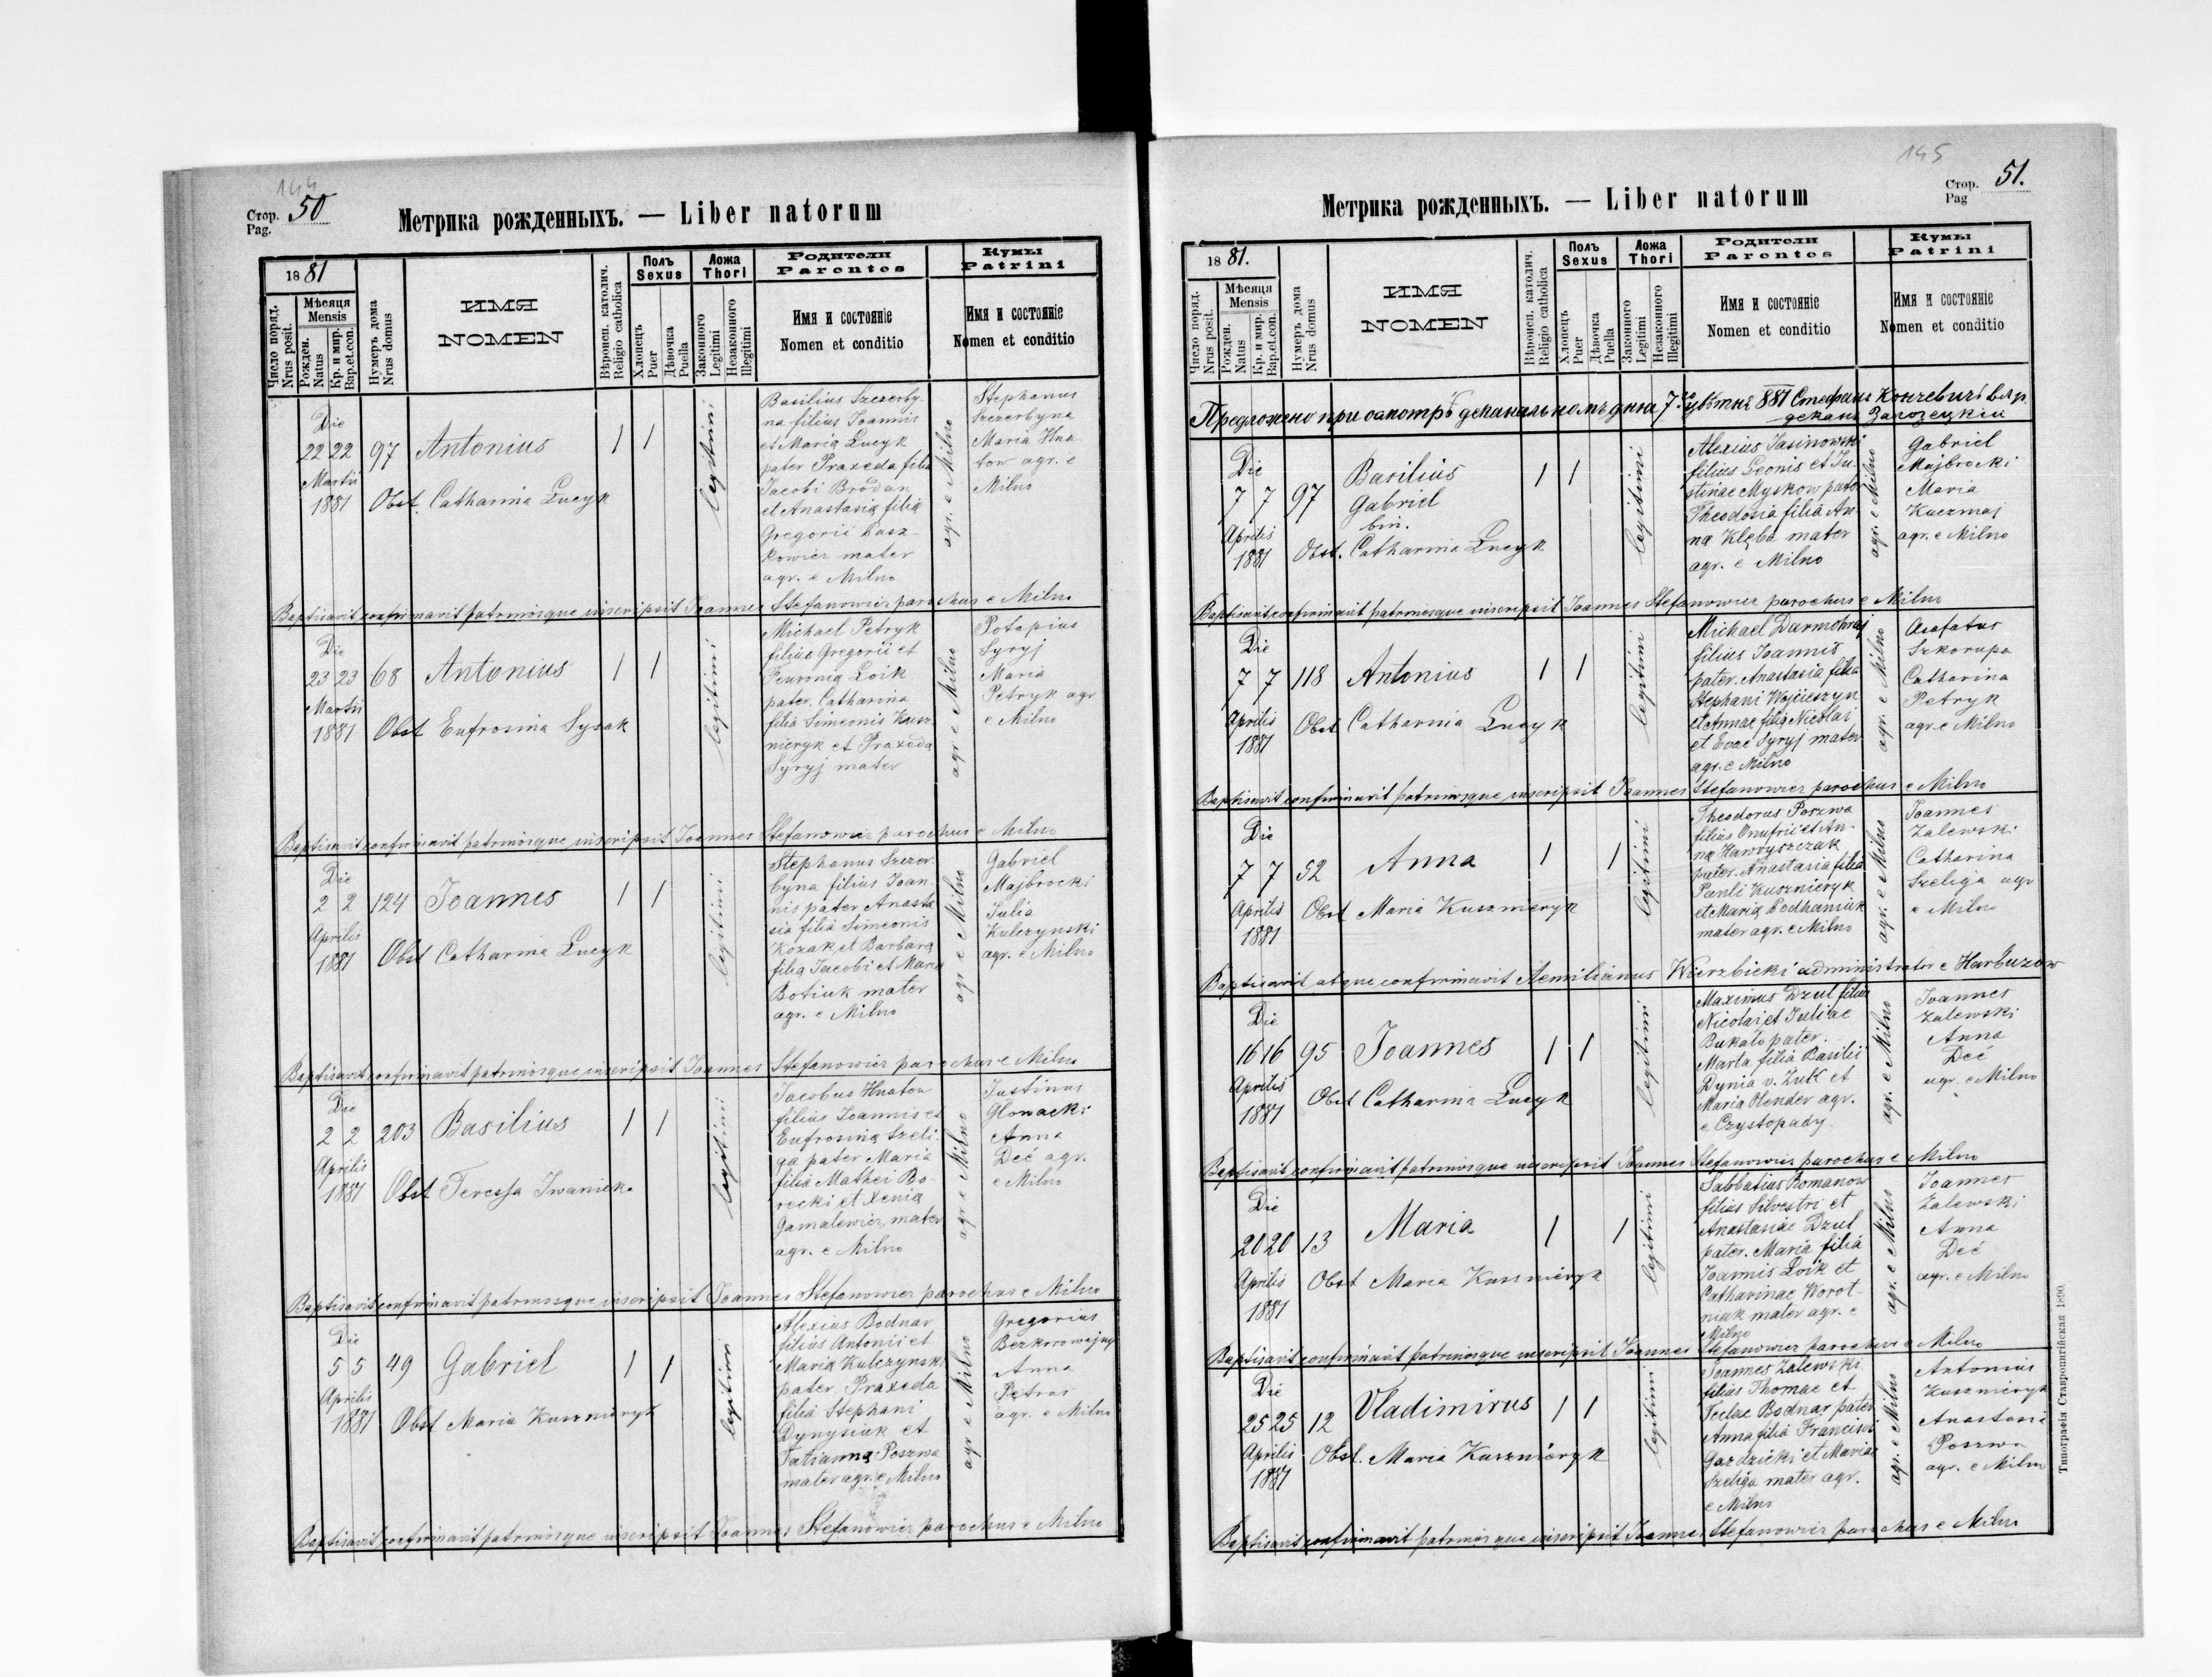 144
Стор. 50
Pag.
Метрика рожденныхъ. — Liber natorum
1881
Число поряд.
Nrus posit.
Мѣсяця
Mensis
Рожден.
Natus
Кр. и мир.
Bap.et.con.
Нумеръ дома
Nrus domus
ИМЯ
NOMEN
Вѣроисп. католич.
Religio catholica
Полъ
Sexus
Хлопецъ
Puer
Дѣвочка
Puella
Ложа
Thori
Законного
Legitimi
Незаконного
Illegitimi
Родители
Parentes
Имя и состояніе
Nomen et conditio
Кумы
Patrini
Имя и состояніе
Nomen et conditio
Die
22 22 97 Antonius 1 1
Martii
1881 Obst. Catharina Lucyk
legitimi
Basilius Szczerby-
na filius Joannis
et Maria Lucyk
pater Praxeda filia
Jacobi Brodan
et Anastasia filia
Gregorii
mater
agr. e Milno
agr. e Milno
Stephanus
Szczerbyna
Maria Hna-
tow agr. e
Milno
Baptisavit confirmavit patrinosque inscripsit Joannes Stefanowicz parochus e Milno
Die
23 23 68 Antonius 1 1
Martii
1881 Obst Eufrosina Sysak
legitimi
Michael Petryk
filius Gregorii et
Feuronia Loik
pater. Catharina
filia Simeonis Kusz-
nieryk et Praxeda
Syryj mater
agr e Milno
Potapius
Syryj
Maria
Petryk agr
e Milno
Baptisavit confirmavit patrinosque inscripsit Joannes Stefanowicz parochus e Milno
Die
2 2 124 Joannes 1 1
Aprilis
1881 Obst Catharina Lucyk
legitimi
Stephanus Szczer-
byna filius Joan-
nis pater Anasta-
sia filia Simeonis
Kozak et Barbara
filia Jacobi et Maria
Botiuk mater
agr. e Milno
agr e Milno
Gabriel
Majbrocki
Julia
Kulczynski
agr. e Milno
Baptisavit confirmavit patrinosque inscripsit Joannes Stefanowicz parochus e Milno
Die
2 2 203 Basilius 1 1
Aprilis
1881 Obst Teressa Iwanicka
legitimi
Jacobus Hnatow
filius Joannis et
Eufrosina Szeli-
ga pater Maria
filia Mathei Bo-
recki et Xenia
Gamalewicz mater
agr. e Milno
agr e Milno
Justinus
Glowacki
Anna
Deć agr.
e Milno
Baptisavit confirmavit patrinosque inscripsit Joannes Stefanowicz parochus e Milno
Die
5 5 49 Gabriel 1 1
Aprilis
1881 Obst Maria Kusznieryk
legitimi
Alexius Bodnar
filius Antonii et
Maria Kulczynski
pater. Praxeda
filia Stephani
Dynysiuk et
Tatianna Poszwa
mater agr. e Milno
agr e Milno
Gregorius
Anna
Petras
agr. e Milno
Baptisavit confirmavit patrinosque inscripsit Joannes Stefanowicz parochus e Milno
145
Стор. 51.
Pag
Метрика рожденныхъ. — Liber natorum
1881.
Число поряд.
Nrus posit.
Мѣсяця
Mensis
Рожден.
Natus
Кр. и мир.
Bap.et.con.
Нумеръ дома
Nrus domus
ИМЯ
NOMEN
Вѣроисп. католич.
Religio catholica
Полъ
Sexus
Хлопецъ
Puer
Дѣвочка
Puella
Ложа
Thori
Законного
Legitimi
Незаконного
Illegitimi
Родители
Parentes
Имя и состояніе
Nomen et conditio
Кумы
Patrini
Имя и состояніе
Nomen et conditio
Предложено при осмотрѣ деканальномъ дня 7 цвѣтня 881 Стефанъ
деканъ Залозецкій
Die
7 7 97 Basilius 1 1
Gabriel
bin.
Aprilis
1881 Obst. Catharina Lucyk
legitimi
Alexius Jasinowski
filius Leonis et Ju-
stinae Myskow pater
Theodosia filia An-
na Klęba mater
agr. e Milno
agr. e Milno
Gabriel
Majbrocki
Maria
Kuczmaj
agr. e Milno
Baptisavit confirmavit patrinosque inscripsit Joannes Stefanowicz parochus e Milno
Die
7 7 118 Antonius 1 1
Aprilis
1881 Obst Catharina Lucyk
legitimi
Michael Darmohraj
filius Joannis
pater. Anastasia filia
Stephani Wojciszyn
et Annae filia Nicolai
et Evae Syryj mater
agr. e Milno
agr. e Milno
Szkorupa
Catharina
Petryk
agr. e Milno
Baptisavit confirmavit patrinosque inscripsit Joannes Stefanowicz parochus e Milno
Die
7 7 52 Anna 1 1
Aprilis
1881 Obst Maria Kusznieryk
legitimi
Theodorus Poszwa
filius Onufrii et An-
na Hawryszczak
pater. Anastasia filia
Pauli Kusznieryk
et Maria
mater agr. e Milno
agr. e Milno
Joannes
Zalewski
Catharina
Szeliga agr
e Milno
Baptisavit atque confirmavit Aemilianus Wierzbicki administrator e Harbuzow
Die
16 16 95 Joannes 1 1
Aprilis
1881 Obst Catharina Lucyk
legitimi
Maximus Dzul filius
Nicolai et Juliae
Bukało pater.
Marta filia Basilii
Dynia v. Żuk et
Maria Olender agr.
e Czystopady
agr. e Milno
Joannes
Zalewski
Anna
Deć
agr. e Milno
Baptisavit confirmavit patrinosque inscripsit Joannes Stefanowicz parochus e Milno
Die
20 20 13 Maria 1 1
Aprilis
1881 Obst Maria Kusznieryk
legitimi
Sabbatius Romanow
filius Silvestri et
Anastasiae Dzul
pater. Maria filia
Joannis Loik et
Catharinae Worot-
niak mater agr. e
Milno
agr. e Milno
Joannes
Zalewski
Anna
Deć
agr. e Milno
Baptisavit confirmavit patrinosque inscripsit Joannes Stefanowicz parochus e Milno
Die
25 25 12 Vladimirus 1 1
Aprilis
1881 Obst. Maria Kusznieryk
legitimi
Joannes Zalewski
filius Thomae et
Teclae Bodnar pater
Anna filia Francisci
Gazdzicki et Maria
Szeliga mater agr.
e Milno
agr. e Milno
Antonius
Kusznieryk
Anastasia
Poszwa
agr. e Milno
Baptisavit confirmavit patrinosque inscripsit Joannes Stefanowicz parochus e Milno
Типографія Ставропигійская 1890.